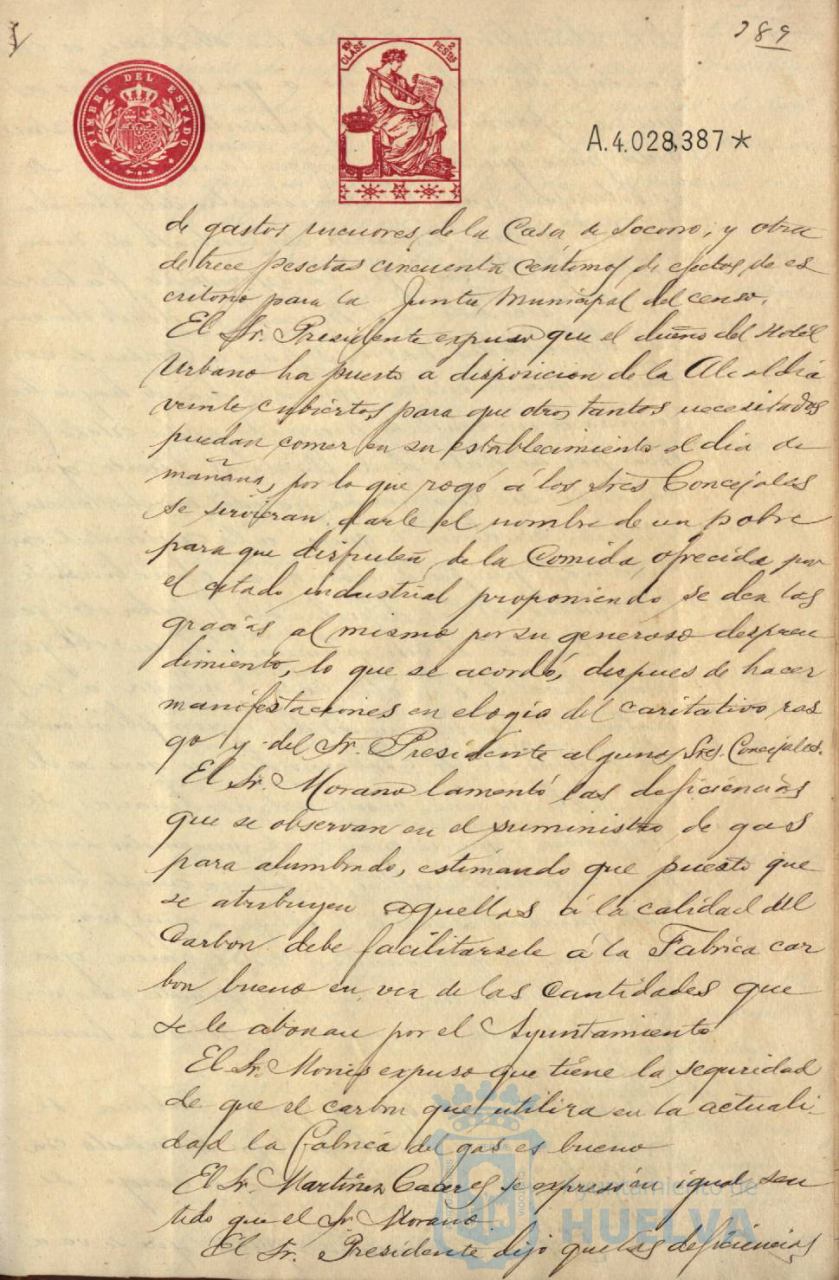 289
TIMBRE DEL ESTADO
CLASE
2 PESTAS
A.4.028,387*
de gastos menores de la Casa de Socorro; y otra
de trece pesetas cincuenta centimos de efectos de es
critorio para la Junta Municipal del censo.
El Sr. Presidente expuso que el dueño del Hotel
Urbano ha puesto a disposicion de la Alcaldia
veinte cubiertos para que otros tantos necesitados
puedan comer en su establecimiento el dia de
mañana, por lo que rogó á los Sres Concejales
se sirvieran darle el nombre de un pobre
para que disfruten de la Comida ofrecida por
el citado industrial proponiendo se den las
gracias al mismo por su generoso despren
dimiento, lo que se acordó, despues de hacer
manifestaciones en elogio del caritativo ras
go y del Sr. Presidente algunos Sres. Concejales.
El Sr. Morano lamentó las deficiencias
que se observan en el suministro de gas
para alumbrado, estimando que puesto que
se atribuyen aquellas á la calidad del
Carbon debe facilitarsele á la Fabrica car
bon bueno en vez de las cantidades que
se le abonan por el Ayuntamiento
El Sr. expuso que tiene la seguridad
de que el carbon que utiliza en la actuali
dad la Fabrica del gas es bueno
El Sr. Martinez Caceres se expresó en igual sen
tido que el Sr. Morano.
El Sr. Presidente dijo que las deficiencias
Ayuntamiento de
HUELVA